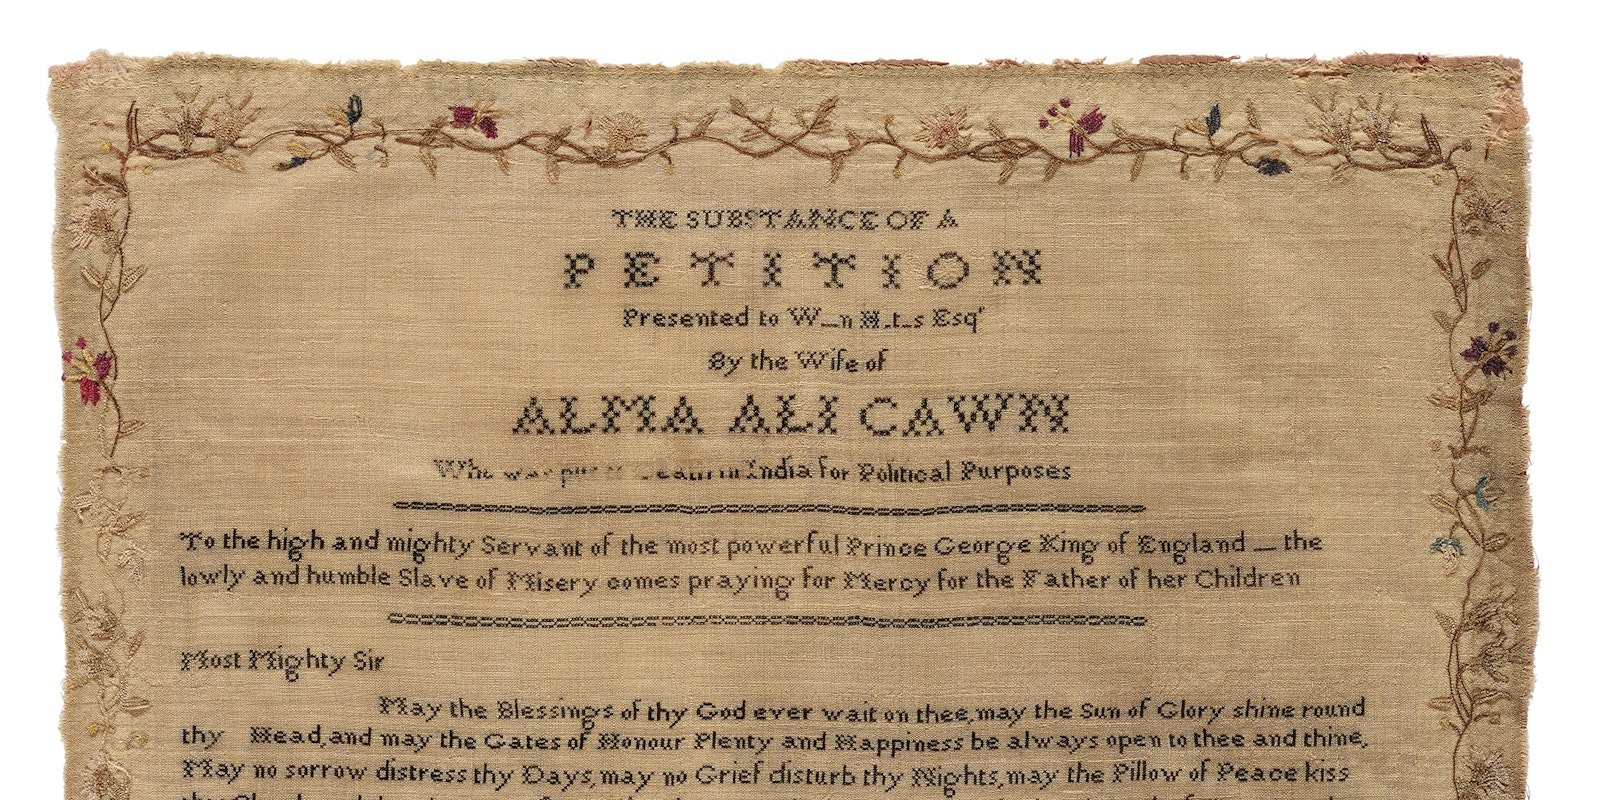 THE SUBSTANCE OF A
PETITION
Presented to W_n H_t_s Esqr
By the Wife of
ALMA ALI CAWN
Who was put in India for Political Purposes
To the high and mighty Servant of the most powerful Prince George King of England _ the
lowly and humble Slave of Misery comes praying for Mercy for the Father of her Children
Most Mighty Sir
May the Blessings of thy God ever wait on thee, may the Sun of Glory shine round
thy Head, and may the Gates of Honour Plenty and Happiness be always open to thee and thine,
May no sorrow distress thy Days, may no Grief disturb thy Nights, may the Pillow of Peace kiss